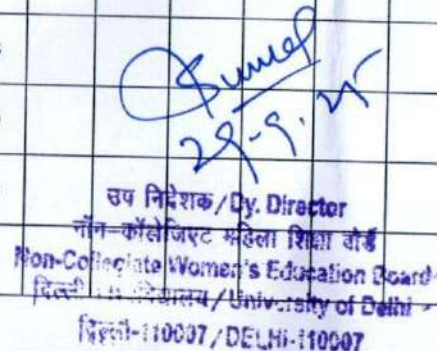 29-9-25
उप निदेशक/Dy. Director
नॉन-कॉलेजिएट महिला शिक्षा बोर्ड
Non-Collegiate Women's Education Board
दिल्ली विश्वविद्यालय/University of Delhi
दिल्ली-110007/DELHI-110007